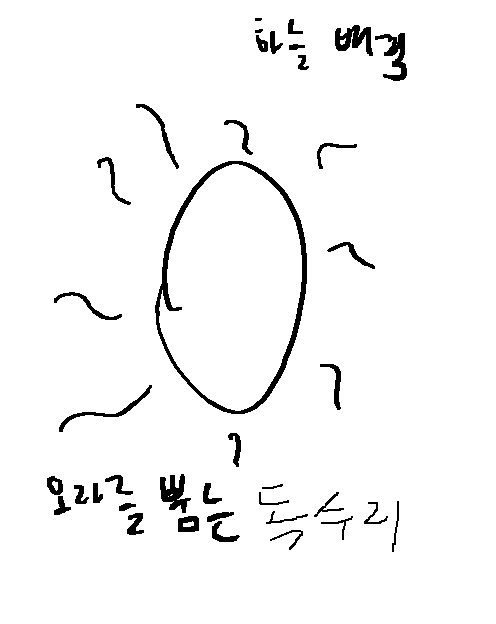 하늘 배경
오라를 뿜는 독수리